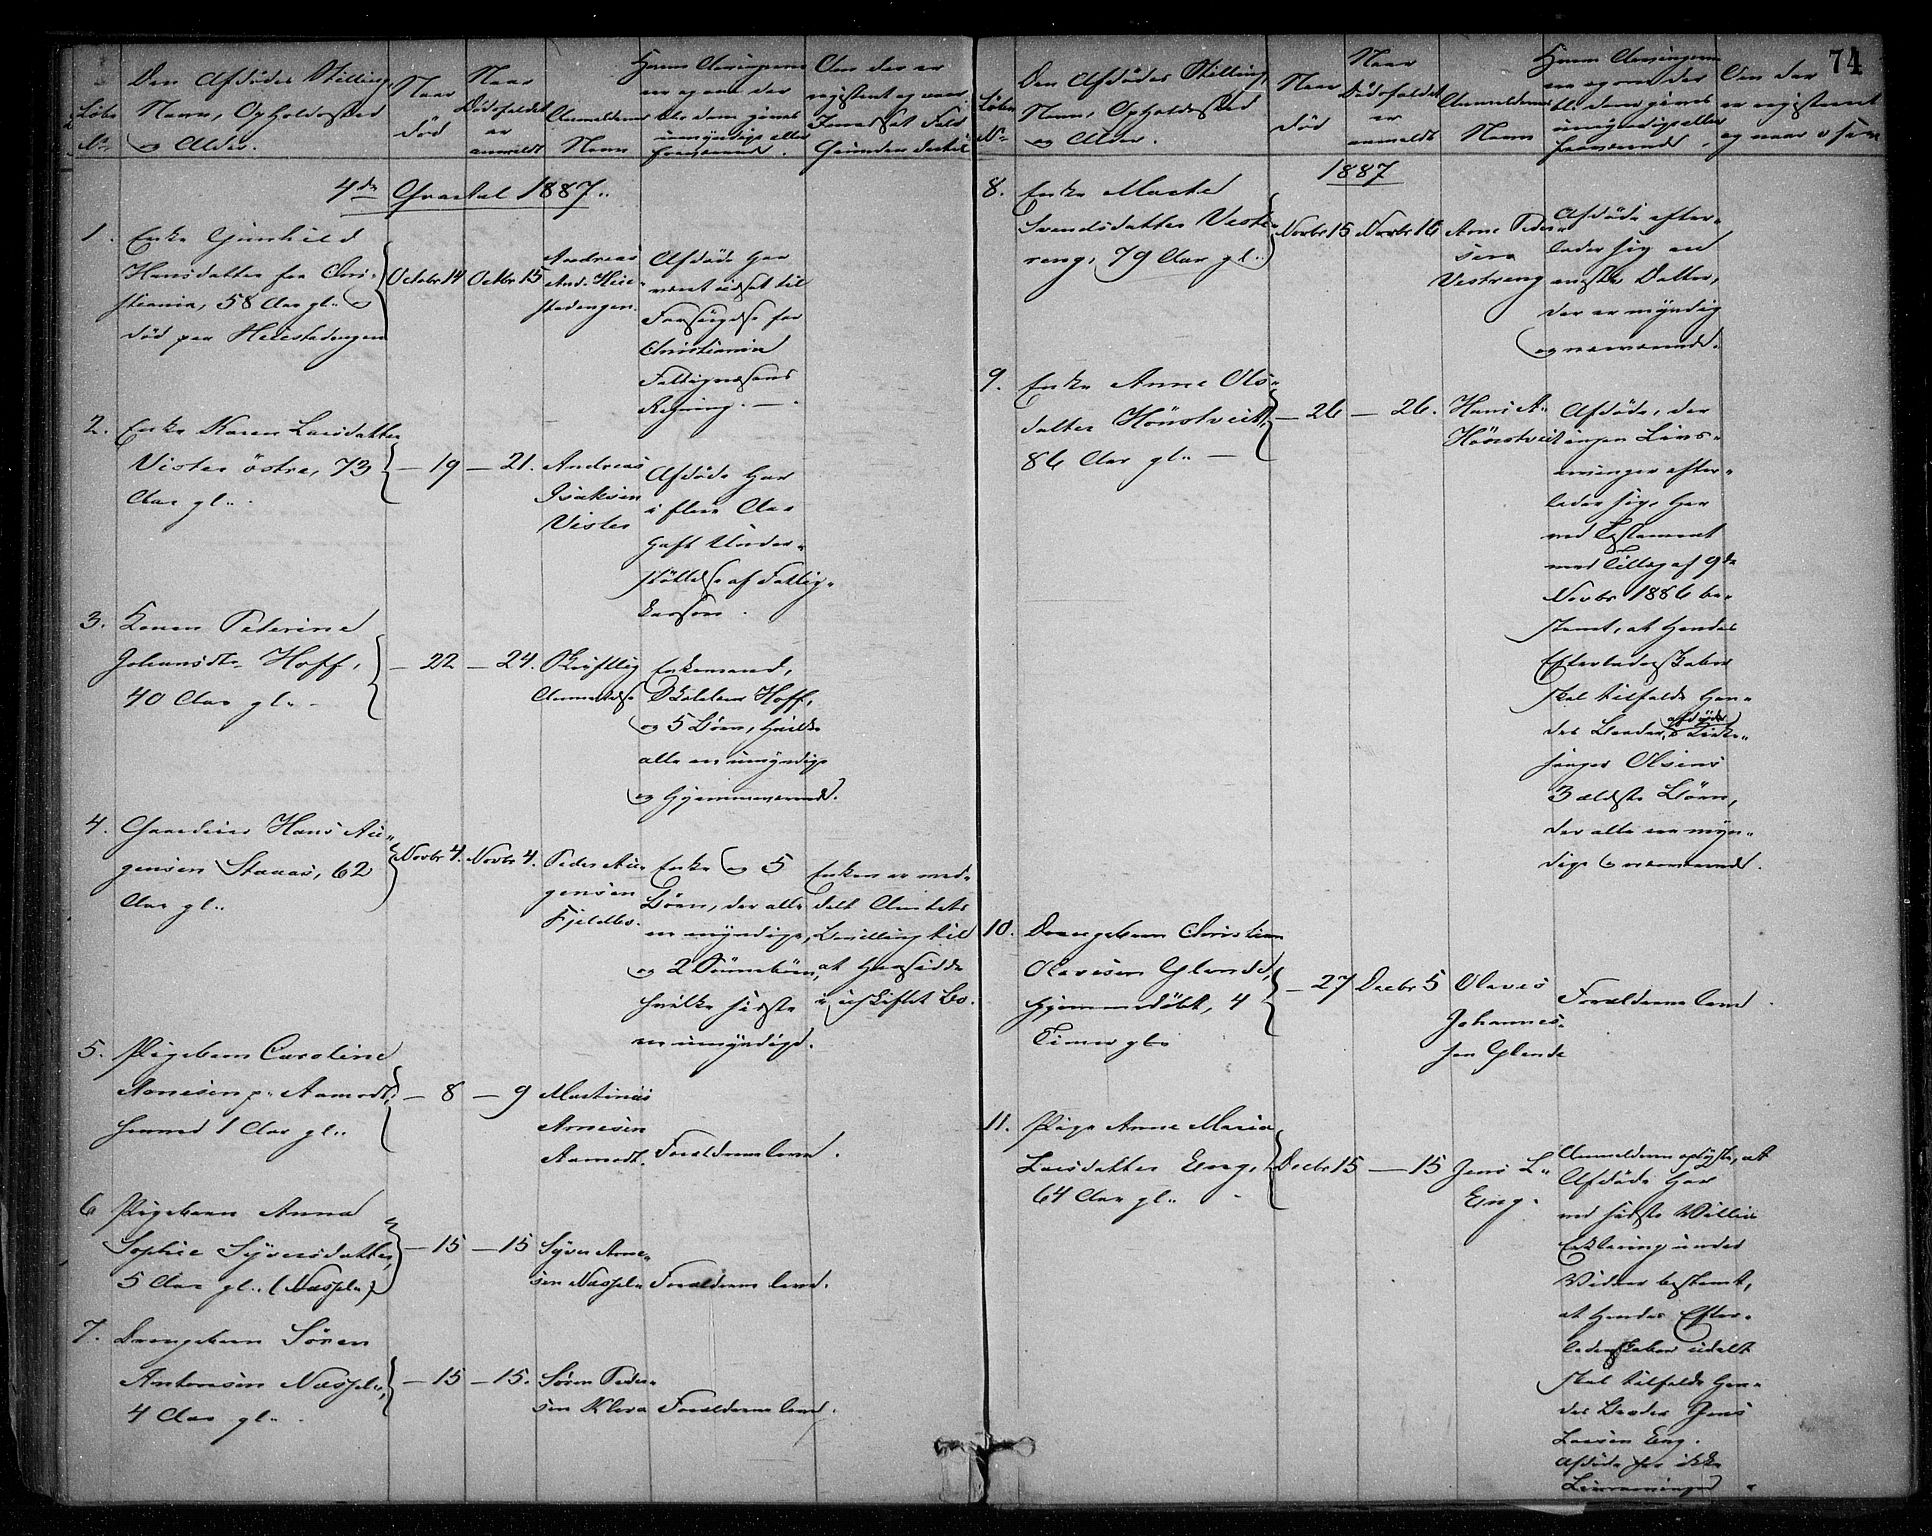 74
Løbe
No
Den Afdødes Stilling,
Navn, Opholdssted
og Alder.
Naar
død
Naar
Dødsfaldet
er
anmeldt
Anmelderens
Navn
Hvem Arvingerne
er og om der
bl. dem gives
umyndige eller
fraværende.
Om der er
registeret og naar
4de Qvartal 1887.
1.
Enke Gunhild
Hansdatter fra Chri-
stiania, 58 Aar gl. og
død paa Heiestadengen
October 14
Octbr 15
Andreas
And. Heie-
stadengen.
Afdøde har
været udsat til
Forsørgelse for
Christiania
Fattigvæsens
Regning. —
2.
Enke Karen Larsdatter
Vister østre, 73
Aar gl.
— 19
— 21.
Andreas
Isaksen
Vister
Afdøde har
i flere Aar
havt Under-
støttelse af Fattig-
kassen.
3.
Konen Petrine
Johansdtr Hoff,
40 Aar gl.
— 22
— 24.
Skriftlig
Anmeldelse
Enkemand,
Hoff,
og 5 Børn, hvilke
alle er umyndige
og hjemmeværende.
4.
Gaardeier Hans Au-
gensen Staaas, 62
Aar gl.
Novbr 4.
Novbr 4.
Peder Au-
gensen
Fjeldbo.
Enke og 5
Børn, der alle
er myndige,
og 2 Sønnebørn,
hvilke sidste
er umyndige.
Enken er med-
delt Amtets
Bevilling til
at hensidde
i uskiftet Bo.
5.
Pigebarn Caroline
Arnesen p. Aamodt,
henved 1 Aar gl.
— 8
— 9
Martinus
Arnesen
Aamodt.
Forældrene leve.
6
Pigebarn Anna
Sophie Syversdatter,
5 Aar gl. (Næssel.)
— 15
— 15
Syver Arne-
sen
Forældrene leve.
7.
Drengebarn Søren
Antonsen
4 Aar gl.
— 15
— 15.
Søren Peder-
sen Kleva
Forældrene leve.
Løbe
No
Den Afdødes Stilling,
Navn, Opholdssted
og Alder.
Naar
død
Naar
Dødsfaldet
er
anmeldt
Anmelderens
Navn
Hvem Arvingerne
er og om der
bl. dem gives
umyndige eller
fraværende.
Om der
er registreret
og naar
1887
8.
Enke Marte
Svendsdatter Vest-
reng, 79 Aar gl.
Novbr 15
Novbr 16
Arne Peder-
sen
Vestreng
Afdøde efter-
lader sig en
eneste Datter,
der er myndig
og nærværende.
9.
Enke Anne Ols-
datter Hønstveit,
86 Aar gl. —
— 26
— 26.
Hans A.
Hønstveit
Afdøde, der
ingen Livs-
arvinger efter-
lader sig, har
ved Testament
med Tillæg af 9de
Novbr 1886 be-
stemt, at hendes
Efterladenskaber
skal tilfalde hen-
des Broder, afdøde Kirke-
sanger Olsens
3 ældste Børn,
der alle er myn-
dige & nærværende.
10.
Drengebarn Christian
Olavesen Glende,
hjemmedøbt, 4
Timer gl.
— 27
Decbr 5
Olaves
Johannes-
sen Glende
Forældrene leve.
11.
Pige Anne Maria
Larsdatter Eng,
64 Aar gl.
Decbr 15
— 15
Jens L.
Eng.
Anmelderen oplyste, at
Afdøde har
ved sidste Villies
Erklæring under
Vidner bestemt,
at hendes Efter-
ladenskaber udelt
skal tilfalde hen-
des Broder Jens
Larsen Eng.
Afdøde har ikke
Livsarvinger